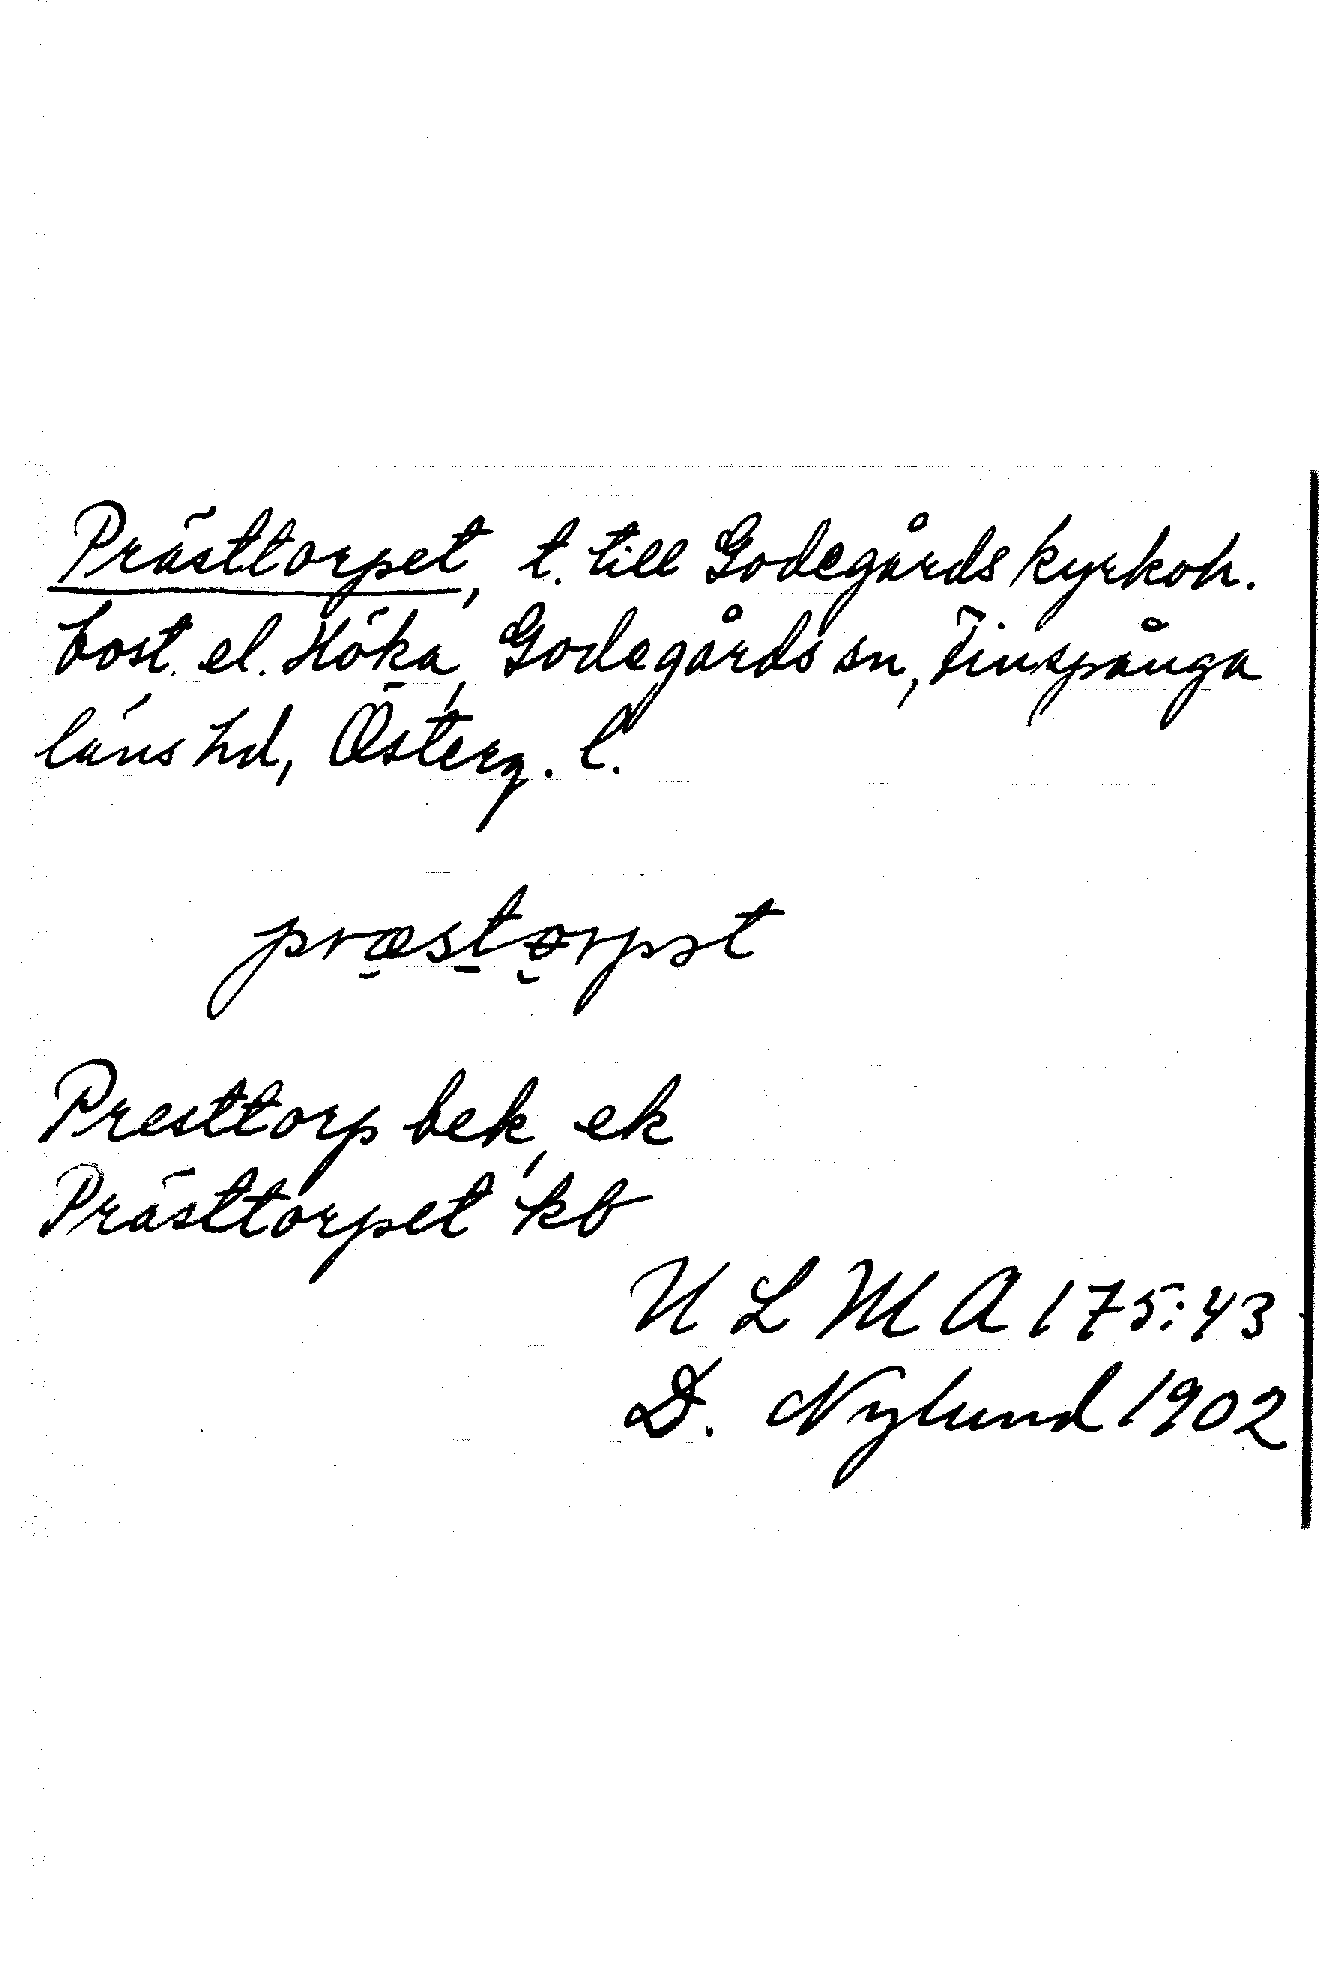 Prästtorpet, t. till Godegårds kyrkoh.
bost. el. Höka, Godegårds sn, Finspånga
läns hd, Österg. l.
præstorpət
Presttorp bek, ek
Prästtorpet kb
U L M A 175:43
D. Nylund 1902